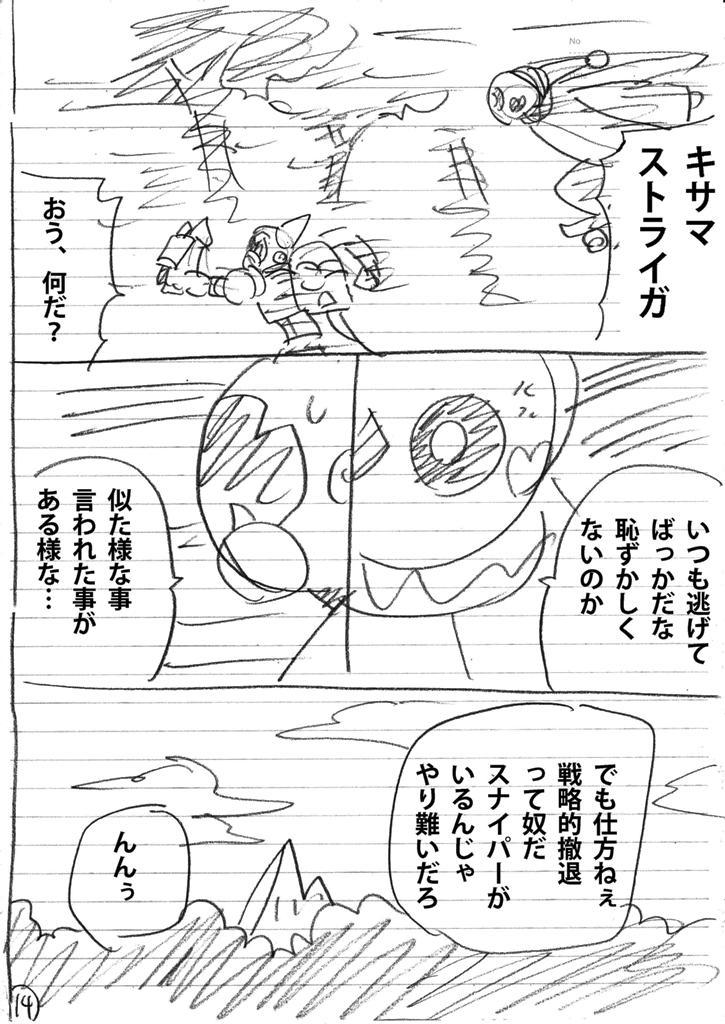 No
キサマ
ストライガ
おう、何だ？
いつも逃げて
ばっかだな
恥ずかしく
ないのか
似た様な事
言われた事が
ある様な…
でも仕方ねぇ
戦略的撤退
って奴だ
スナイパーが
いるんじゃ
やり難いだろ
んんぅ
14